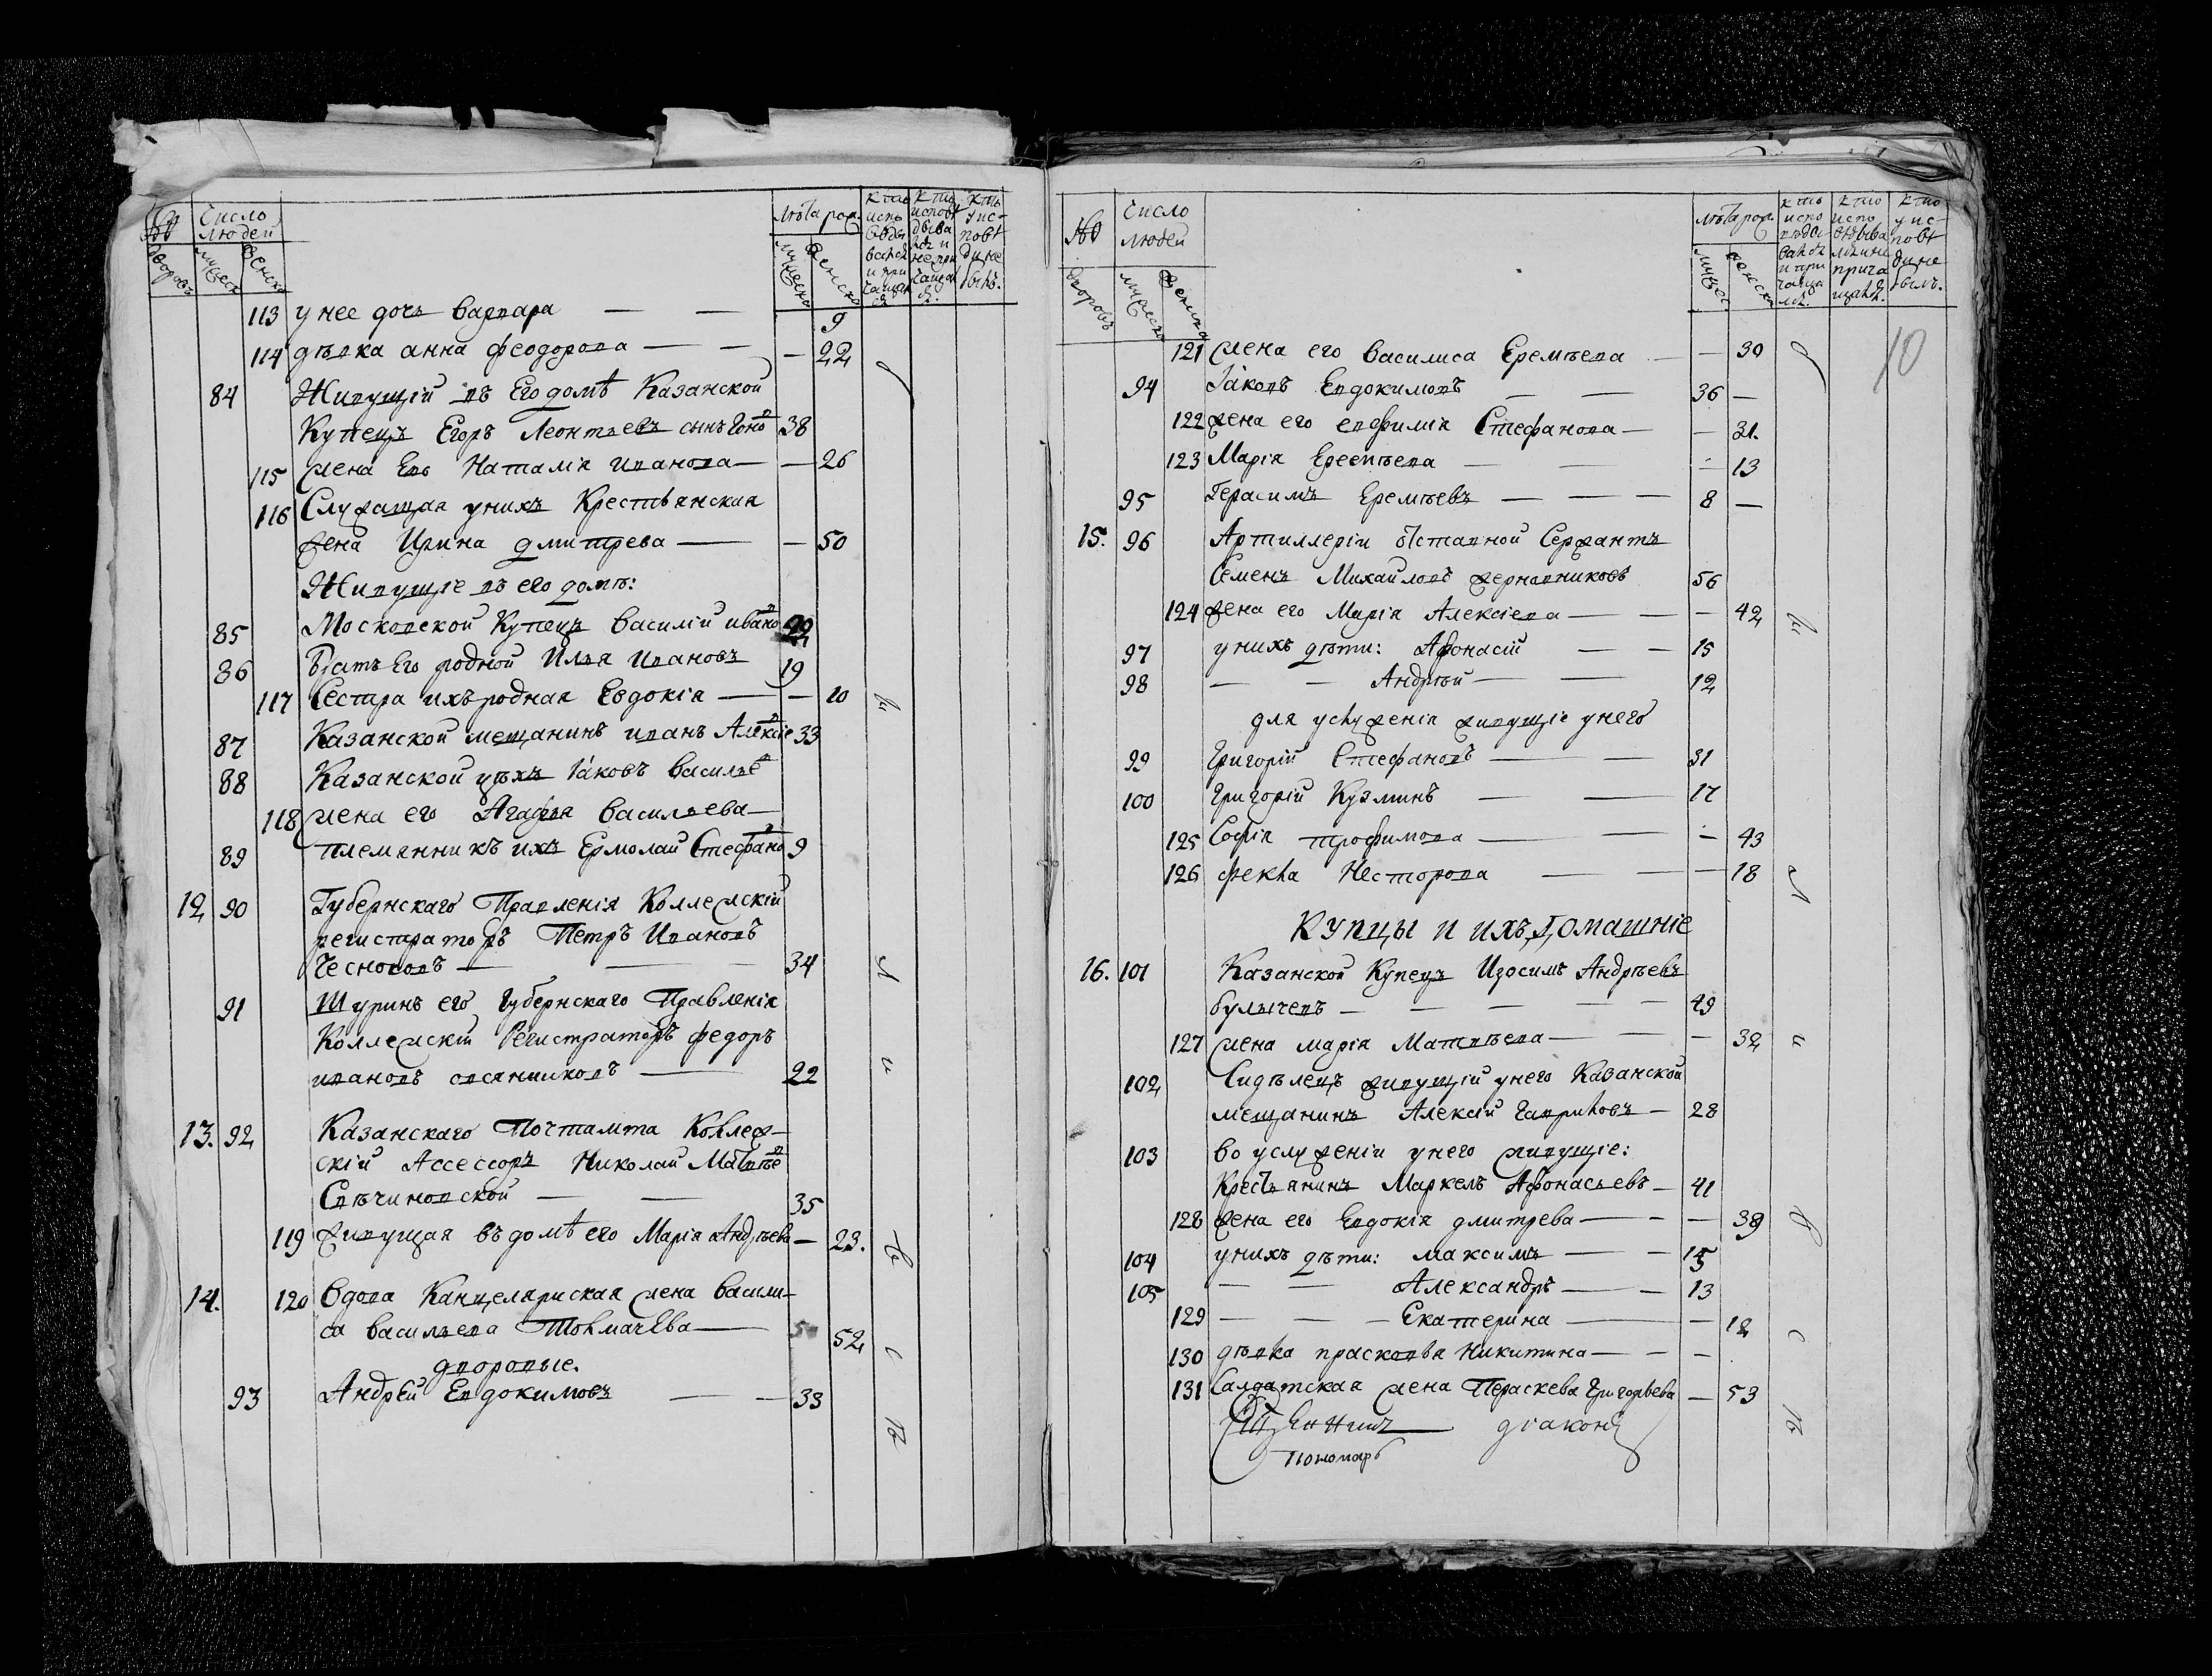 №
Число
людей
Лѣта рож.
дворовъ
мужеск
женска
113 у нее дочь варвара — — 9
114 дѣвка анна феодорова — — — 22
84 Живущiй въ Его домѣ Казанской
Купецъ Егоръ Леонтьевъ сынъ 38
115 жена Его Наталiя иванова — — 26
116 Служащая у нихъ Крестьянская
жена Ирина дмитрева — — 50
Живущiе въ его домѣ:
85 Московской Купецъ василiй ивано в
86 братъ Его родной Илья Ивановъ 19
117 Сестра ихъ родная Евдокiя — — 10
87 Казанской мещанинъ иванъ Алексiе в 33
88 Казанской цѣхъ Iаковъ василье в
118 жена его Агафья васильева —
89 племянникъ ихъ Ермолай Стефано в 9
12 90 Губернскаго Правленiя Коллежскiй
регистраторъ Петръ Ивановъ
Чесноковъ — — — 34
91 Шуринъ его Губернскаго Правленiя
Коллежскiй Регистраторъ федоръ
ивановъ овсянниковъ — 22
13. 92 Казанскаго Почтамта Коллеж-
скiй Ассессоръ Николай Матвѣе в
Свѣчиновской — — 35
119 живущая въ домѣ его Марiя Андрѣева — 23.
14. 120 вдова Канцеляриская жена васили-
са васильева Толмачева — 52
дворовые.
93 Андрей Евдокимовъ — — 33
№
Число
людей
Лѣта рож.
дворовъ
мужеска
женска
10
121 жена его василиса Еремѣева — — 30
94 Iаковъ Евдокимовъ — — 36 —
122 жена его евфимiя Стефанова — — 31.
123 Марiя — — — 13
95 Герасимъ Еремѣевъ — — — 8 —
15. 96 Артиллерiи Отставной Сержантъ
Семенъ Михайловъ жерновниковъ 56
124 жена его Марiя Алексiева — — — 42
97 у нихъ дѣти: Афонасiй — — 15
98 — — Андрѣй — — 12
для услуженiя живущiе у него
99 Григорiй Стефановъ — — 31
100 Григорiй Кузминъ — — 17
125 Софiя трофимова — — — 43
126 фекла Несторова — — — 18
Купцы и ихъ домашнiе
16. 101 Казанской Купецъ Изосимъ Андрѣевъ
булычевъ — — — — — 49
127 жена марiя Матвѣева — — — 32
102 Сидѣлецъ живущiй у него Казанской
мещанинъ Алексiй гавриловъ — 28
103 во услуженiи у него живущiе:
Крестьянинъ Маркелъ Афонасьевъ — 41
128 жена его Евдокiя дмитрева — — — 39
104 у нихъ дѣти: максимъ — — 15
105 — — Александръ — — 13
129 — — — Екатерина — — 12
130 дѣвка прасковья Никитина — — —
131 Салдатская жена Пераскева Григорьева — 53
дiаконъ
Пономарь